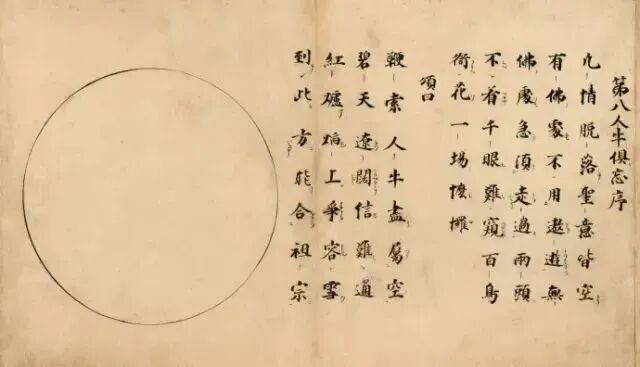 第八人牛俱忘序
凡情脱落聖意皆空
有佛處不用遨遊無
佛處急須走過兩頭
不着千眼難窺百鳥
銜花一場懡㦬
頌曰
鞭索人牛盡屬空
碧天遼闊信難通
紅爐焰上爭容雪
到此方能合祖宗